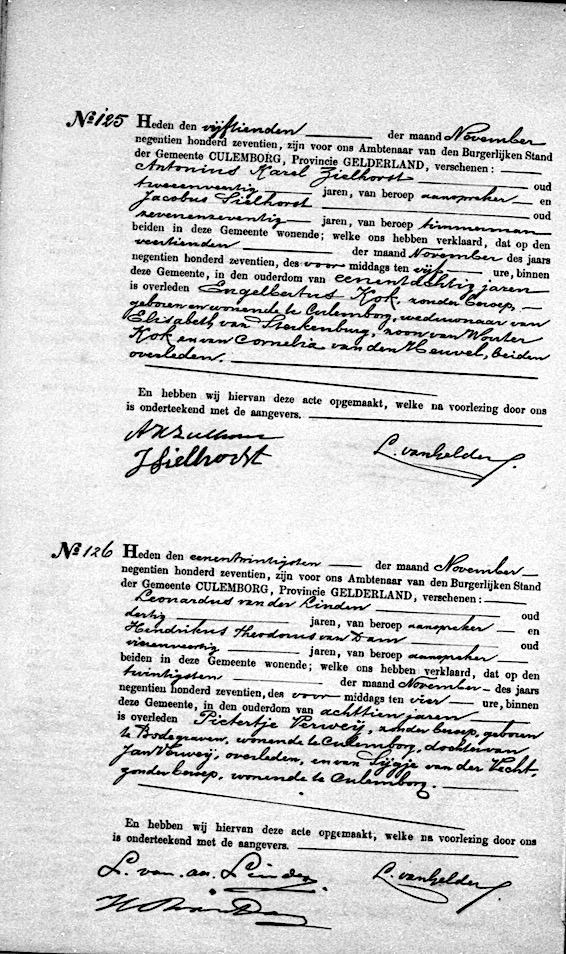 No 125 Heden den vijftienden der maand November
negentien honderd zeventien, zijn voor ons Ambtenaar van den Burgerlijken Stand
der Gemeente CULEMBORG, Provincie GELDERLAND, verschenen:
Antonius Karel Zielhorst oud
tweeenveertig jaren, van beroep aanspreker en
Jacobus Sielhorst oud
zevenenzeventig jaren, van beroep timmerman
beiden in deze Gemeente wonende; welke ons hebben verklaard, dat op den
veertienden der maand November des jaars
negentien honderd zeventien, des voor middags ten vijf ure, binnen
deze Gemeente, in den ouderdom van eenentachtig jaren
is overleden Engelbertus Kok, zonder beroep,
geboren en wonende te Culemborg, weduwnaar van
Elisabeth van Sterkenburg, zoon van Wouter
Kok en van Cornelia van den Heuvel, beiden
overleden.
En hebben wij hiervan deze acte opgemaakt, welke na voorlezing door ons
is onderteekend met de aangevers.
AKZielhorst
JSielhorst L. van Gelder
No 126 Heden den eenentwintigsten der maand November
negentien honderd zeventien, zijn voor ons Ambtenaar van den Burgerlijken Stand
der Gemeente CULEMBORG, Provincie GELDERLAND, verschenen:
Leonardus van der Linden oud
dertig jaren, van beroep aanspreker en
Hendrikus Theodorus van Dam oud
vierenveertig jaren, van beroep aanspreker
beiden in deze Gemeente wonende; welke ons hebben verklaard, dat op den
twintigsten der maand November des jaars
negentien honderd zeventien, des voor middags ten vier ure, binnen
deze Gemeente, in den ouderdom van achttien jaren
is overleden Pietertje Verweij, zonder beroep, geboren
te Bodegraven, wonende te Culemborg, dochter van
Jan Verweij, overleden, en van Sijgje van der Vecht,
zonder beroep, wonende te Culemborg.
En hebben wij hiervan deze acte opgemaakt, welke na voorlezing door ons
is onderteekend met de aangevers.
L. van der Linden L. van Gelder